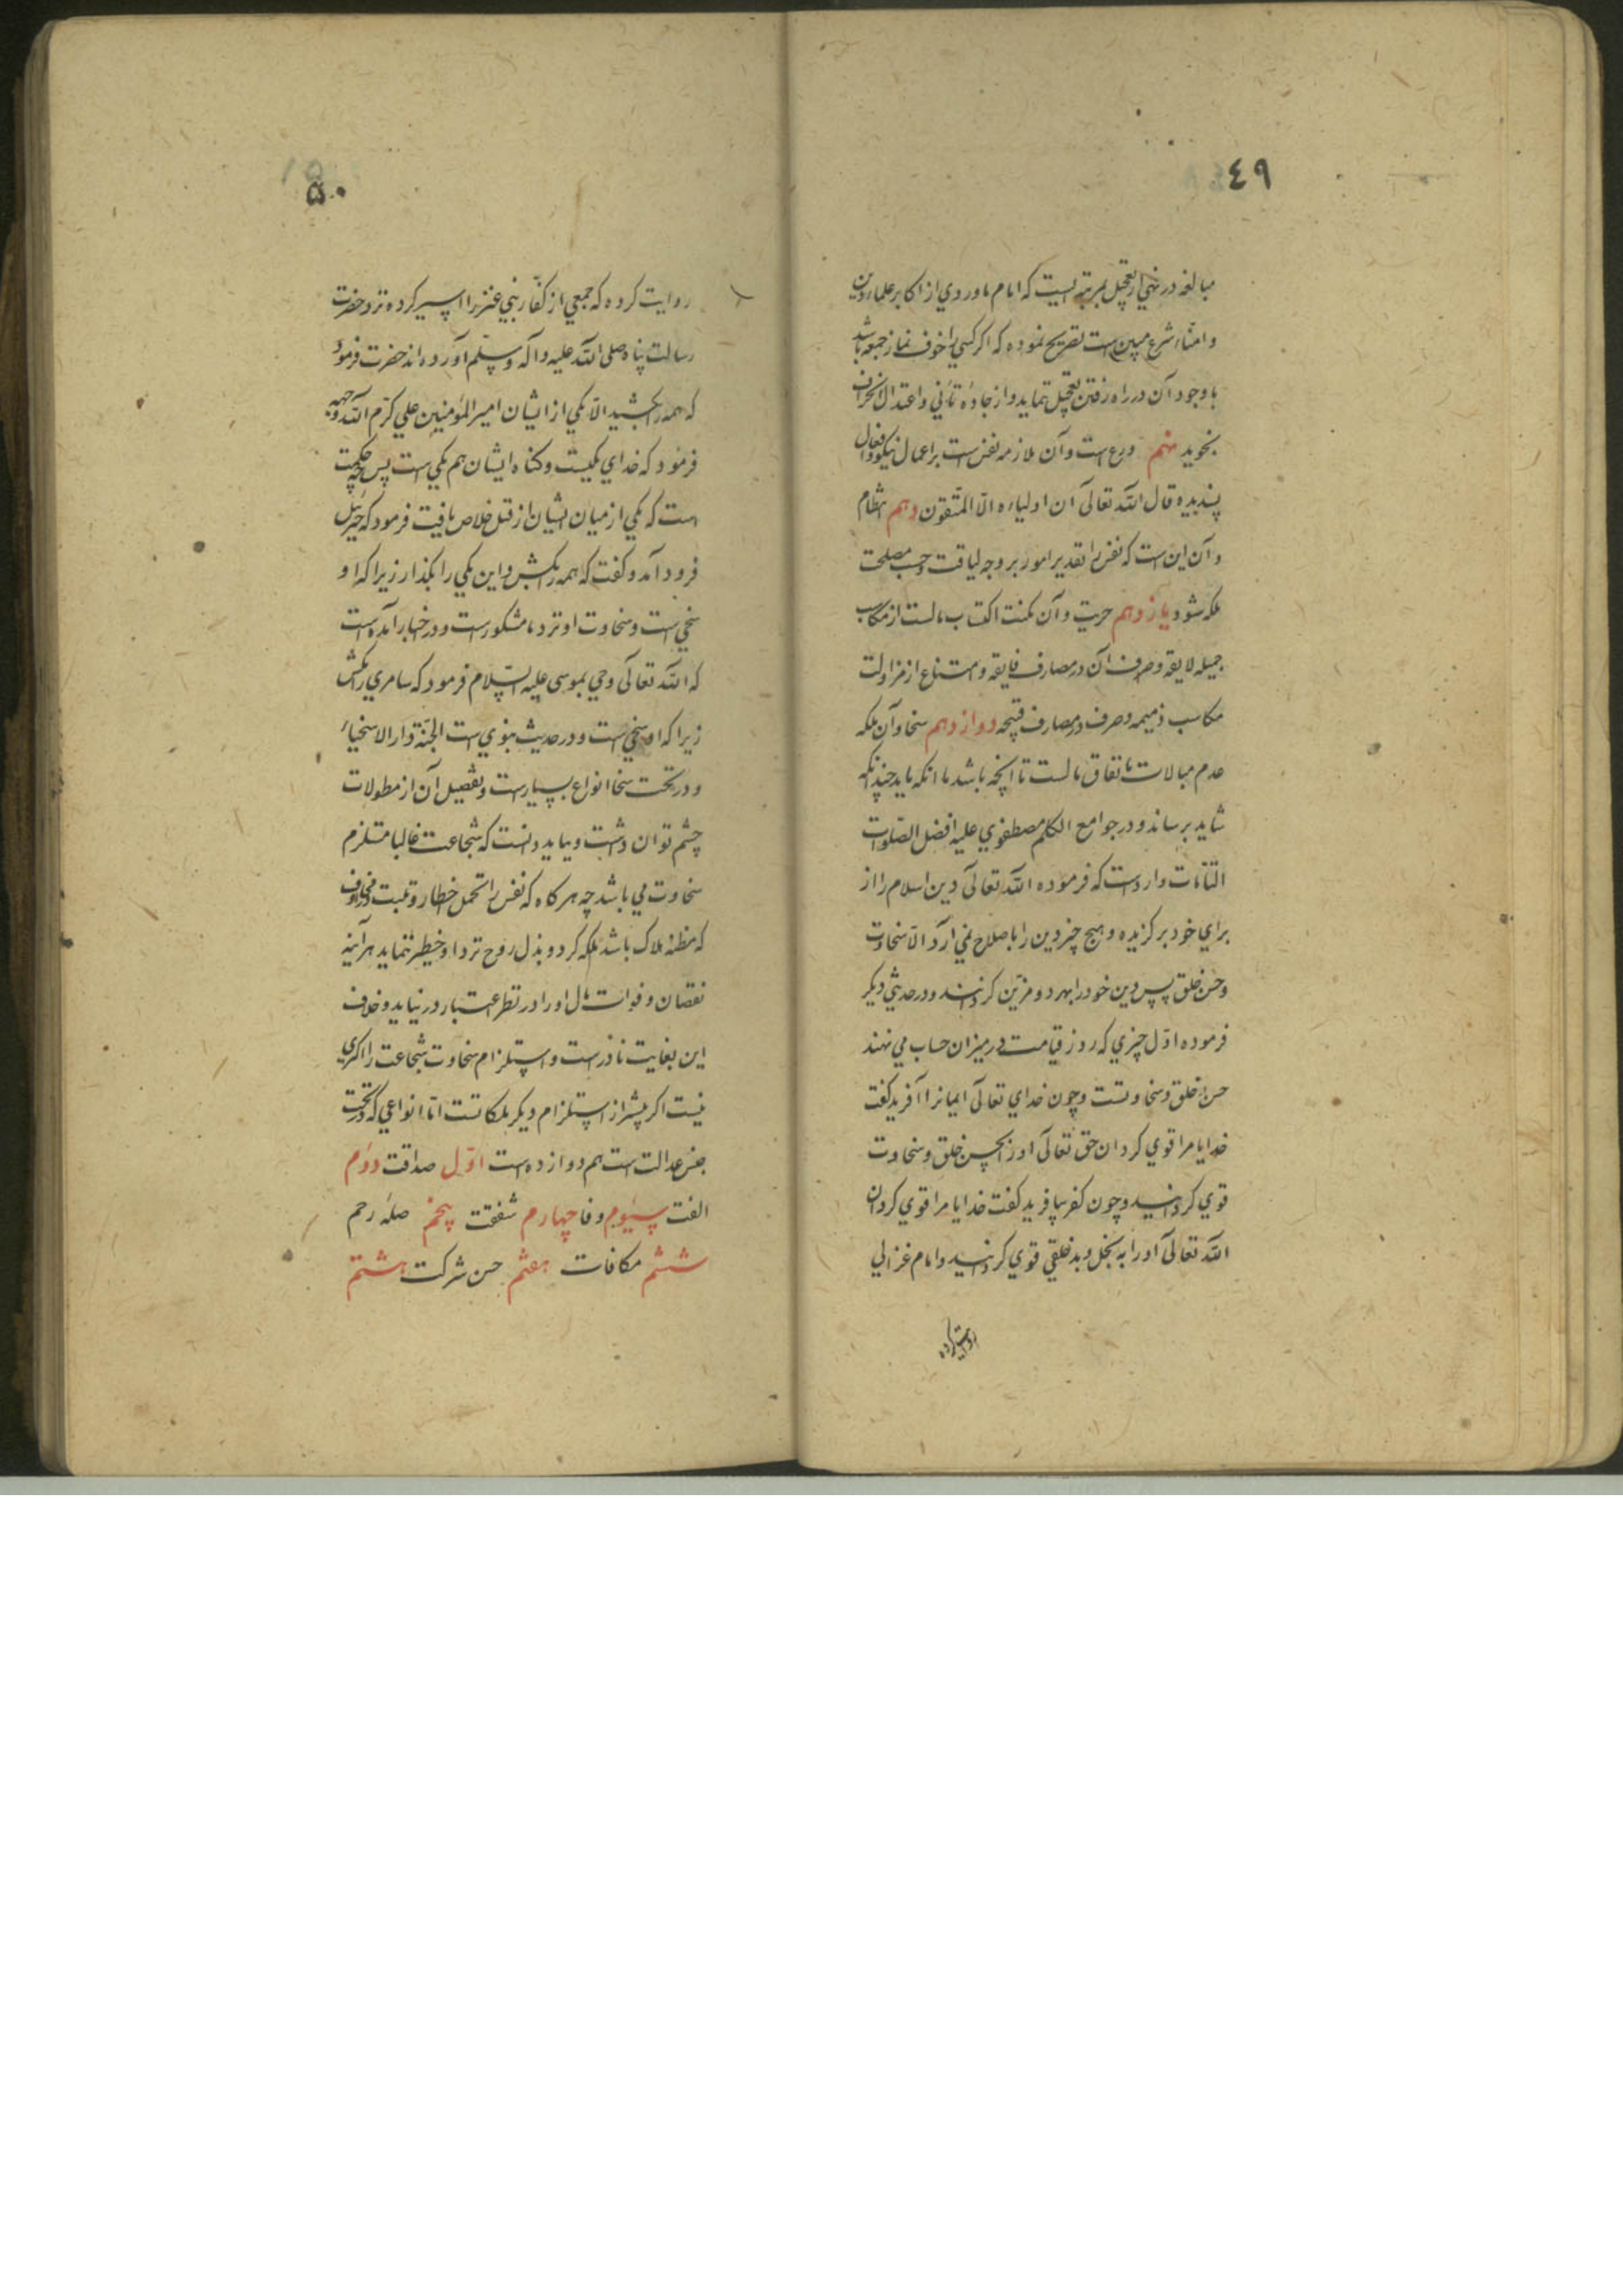 ٤٩
مبالغه در نهي از تعجيل بمرتبه ايست كه امام ماوردي از اكابر علماء دين
و امناء شرع مبين است تصريح نموده كه اكر كسي را خوف نماز جمعه باشد
با وجود آن در راه رفتن تعجيل ننمايد و از جاده تأني و اعتدال انحراف
نجويد نهم ورع است و آن ملازمه نفس است بر اعمال نيكو و افعال
پسنديده قال الله تعالى ان اولياءه الا المتقون دهم انتظام
و آن اين است كه نفس را تقدير امور بر وجه لياقت و حسب مصلحت
ملكه شود يازدهم حريت و آن تمكنت اكتساب مالست از مكاسب
جميله لايقه و صرف آن در مصارف فايقه و امتناع از مزاولت
مكاسب ذميمه و صرف در مصارف قبيحه دوازدهم سخا و آن ملكه
عدم مبالات بانفاق مالست تا آنچه باشد با آنكه بايد چندانكه
شايد برساند و در جوامع الكلم مصطفوي عليه افضل الصلوات
الناميات وارد است كه فرموده الله تعالى دين اسلام را از
براي خود بركزيده و هيچ چيز دين را باصلاح نمي آرد الا سخاوت
و حسن خلق پس دين خود را بهر دو مزين كردانند و در حديثي ديكر
فرموده اول چيزي كه روز قيامت در ميزان حساب مي نهند
حسن خلق و سخاوتست و چون خداي تعالى ايمانرا آفريد كفت
خدايا مرا قوي كردان حق تعالى اورا بحسن خلق و سخاوت
قوي كردانيد و چون كفر بيافريد كفت خدايا مرا قوي كردان
الله تعالى اورا به بخل و بدخلقي قوي كردانيد و امام غزالي
روايت كرده
۵۰
روايت كرده كه جمعي از كفار بني عنبر را اسير كرده نزد حضرت
رسالت پناه صلى الله عليه و آله و سلم آورده اند حضرت فرمود
كه همه را بكشيد الا يكي از ايشان امير المؤمنين علي كرم الله وجهه
فرمود كه خداي يكيست و كناه ايشان هم يكي است پس چه حكمت
است كه يكي از ميان ايشان از قتل خلاص يافت فرمود كه جبرئيل
فرود آمد و كفت كه همه را بكش و اين يكي را بكذار زيرا كه او
سخي است و سخاوت او نزد ما مشكور است و در اخبار آمده است
كه الله تعالى وحي بموسى عليه السلام فرمود كه سامري را مكش
زيرا كه او سخي است و در حديث نبوي است الجنة دار الاسخياء
و در تحت سخا انواع بسيار است و تفصيل آن از مطولات
چشم توان داشت و ببايد دانست كه شجاعت غالبا مستلزم
سخاوت مي باشد چه هركاه كه نفس را تحمل اخطار و ثبت در مخاوف
كه مظنه هلاك باشد ملكه كردد و بذل روح نزد او خطير ننمايد هر آينه
نقصان و فوات مال اورا در نظر اعتبار در نيايد و خلاف
اين بغايت نادر است و استلزام سخاوت شجاعت را اكثري
نيست اكر بيشتر از استلزام ديكر ملكاتست اما انواعي كه در تحت
جنس عدالت است هم دوازده است اول صداقت دوم
الفت سيوم وفا چهارم شفقت پنجم صله رحم
ششم مكافات هفتم حسن شركت هشتم